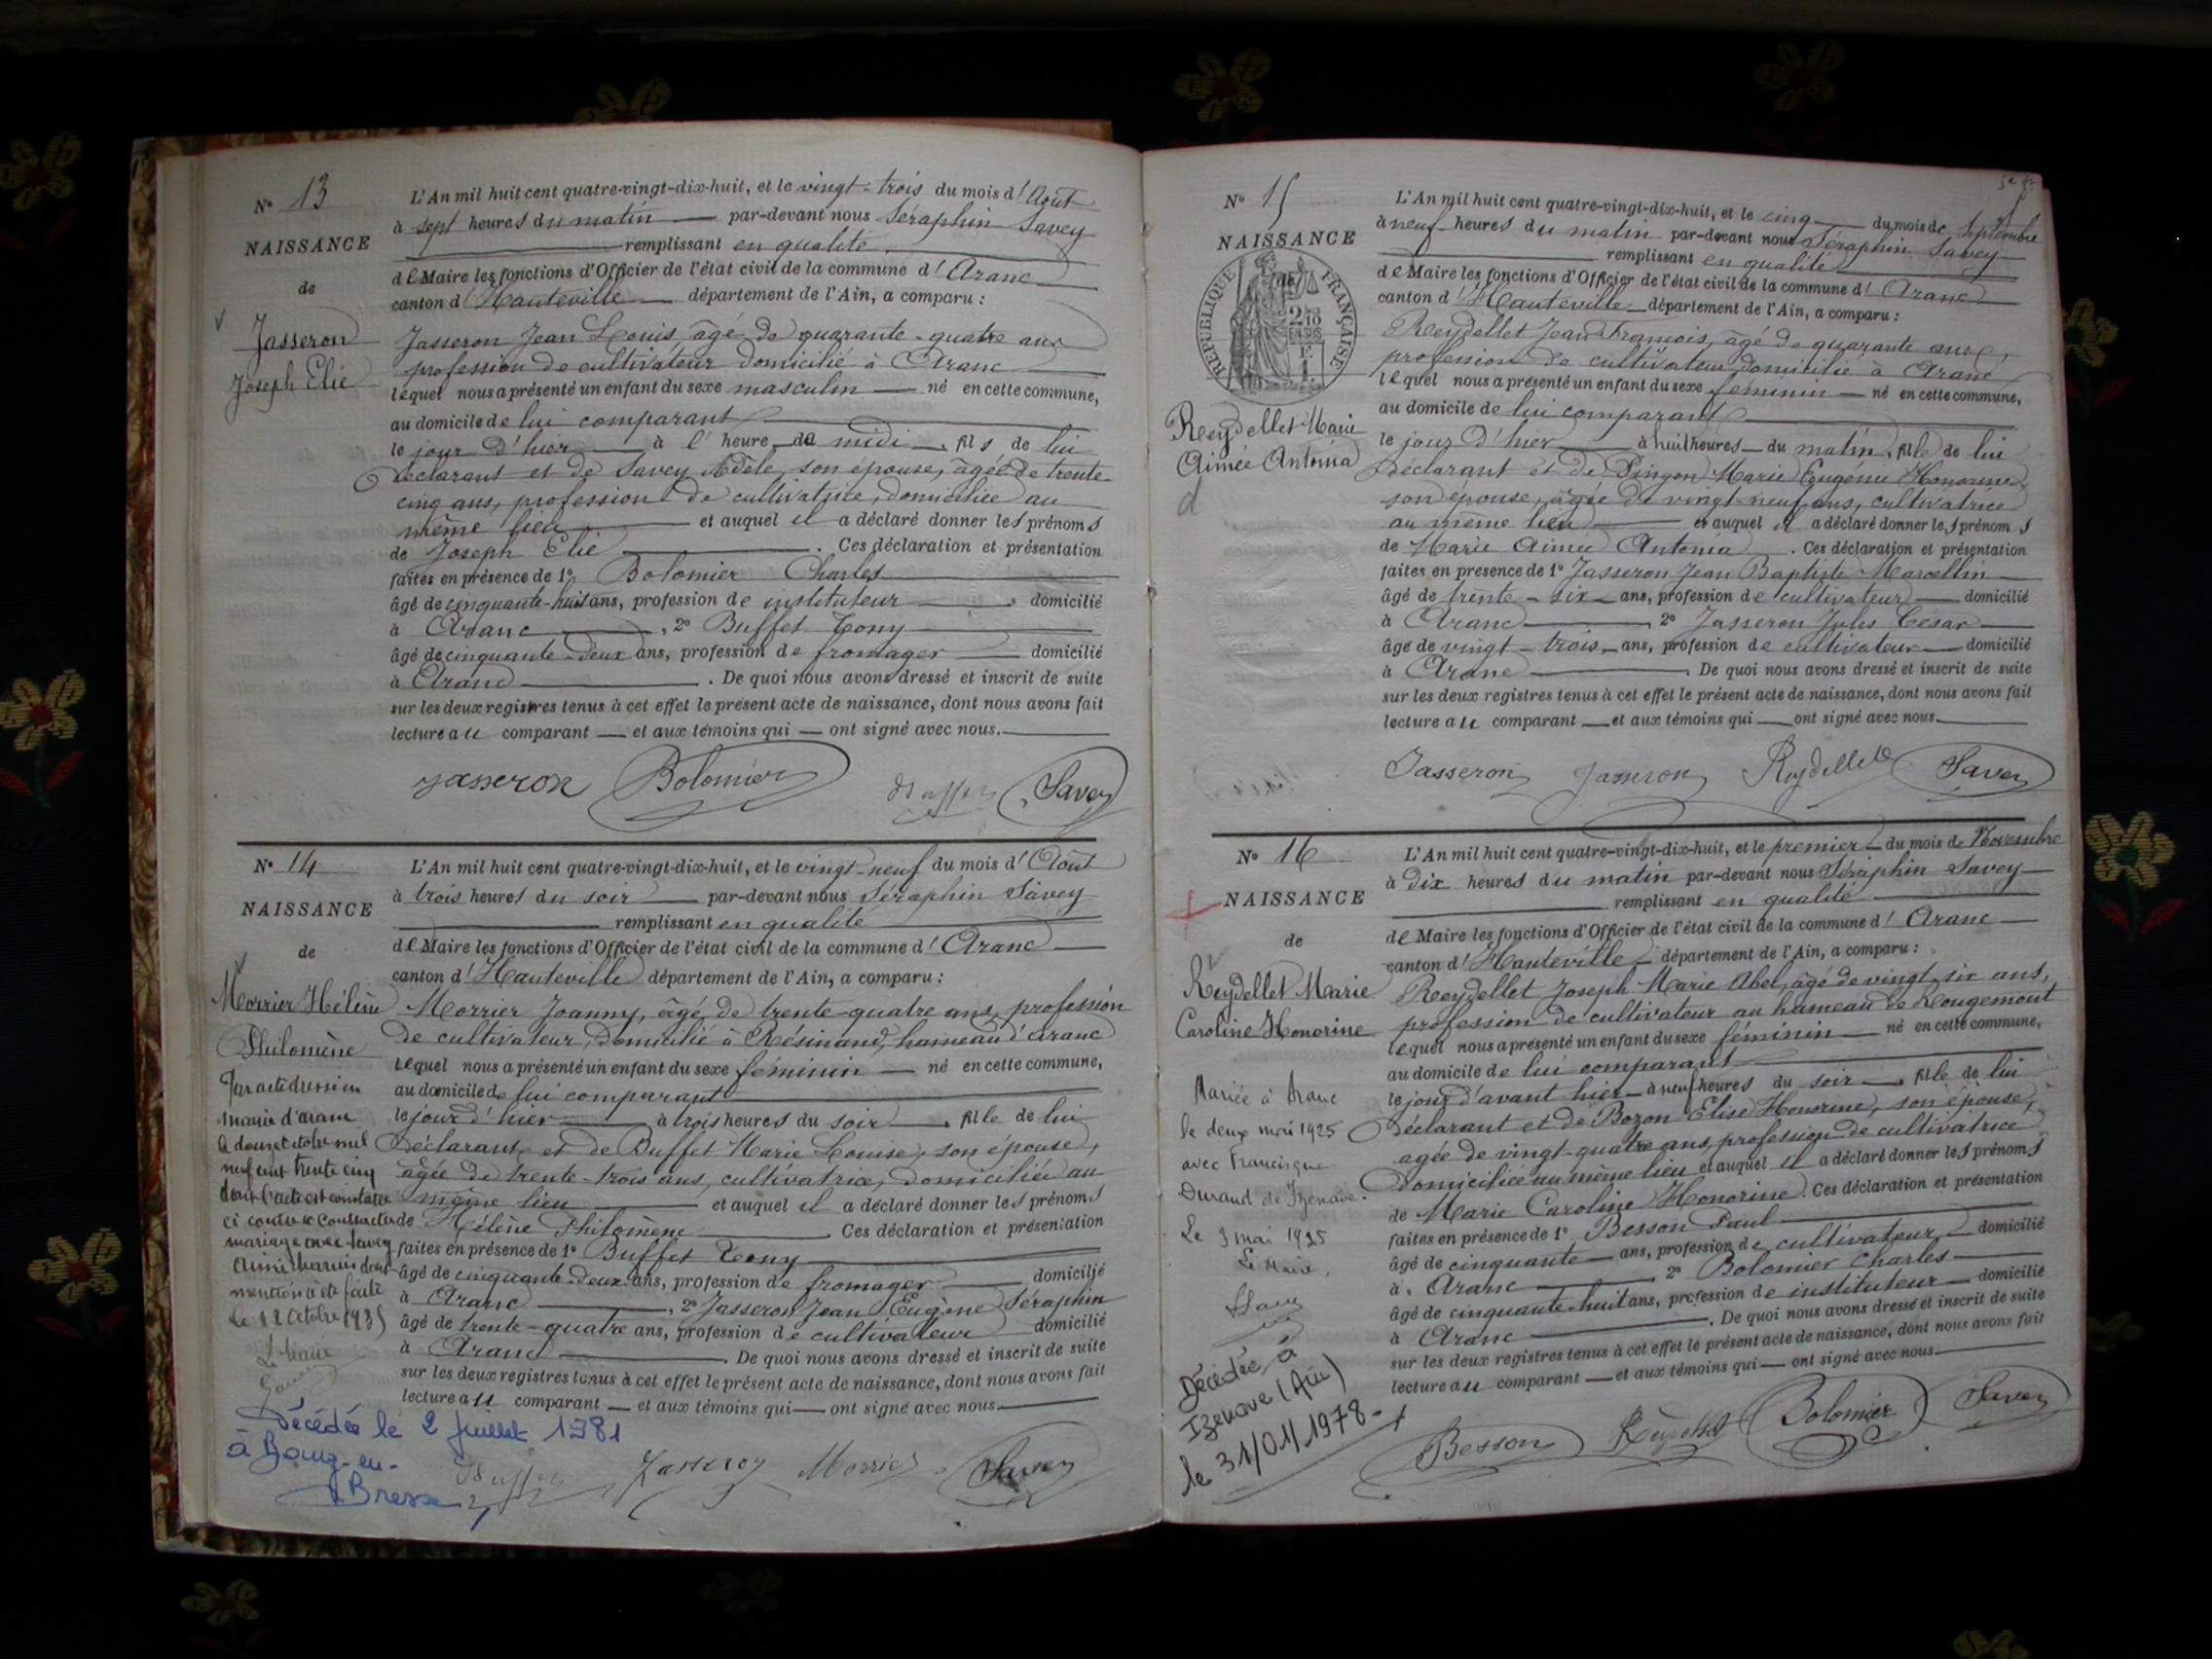 N° 13
NAISSANCE
de
Jasseron
Joseph Elie
L'An mil huit cent quatre-vingt-dix-huit, et le vingt-trois du mois d'Août
à sept heures du matin par-devant nous Séraphin Savey
remplissant en qualité
de Maire les fonctions d'Officier de l'état civil de la commune d'Aranc
canton d'Hauteville département de l'Ain, a comparu :
Jasseron Jean Louis, âgé de quarante-quatre ans
profession de cultivateur domicilié à Aranc
lequel nous a présenté un enfant du sexe masculin né en cette commune,
au domicile de lui comparant
le jour d'hier à l'heure de midi, fils de lui
déclarant et de Savey Adèle, son épouse, âgée de trente-
cinq ans, profession de cultivatrice, domiciliée au
même lieu et auquel il a déclaré donner les prénoms
de Joseph Elie. Ces déclaration et présentation
faites en présence de 1° Bolomier Charles
âgé de cinquante-huit ans, profession de instituteur, domicilié
à Aranc, 2° Buffet Tony
âgé de cinquante-deux ans, profession de fromager domicilié
à Aranc. De quoi nous avons dressé et inscrit de suite
sur les deux registres tenus à cet effet le présent acte de naissance, dont nous avons fait
lecture au comparant et aux témoins qui ont signé avec nous.
Jasseron Bolomier Buffet Savey
N° 14
NAISSANCE
de
Morrier Hélène
Philomène
Par acte dressé en
mairie d'aranc
le douze octobre mil
neuf cent trente cinq
dont l'acte est
ci contre a contracté
mariage avec Savey
Aimé dont
mention a été faite
Le 12 Octobre 1935
Le Maire
Décédée le 2 Juillet 1981
à Bourg-en-
Bresse
L'An mil huit cent quatre-vingt-dix-huit, et le vingt-neuf du mois d'Août
à trois heures du soir par-devant nous Séraphin Savey
remplissant en qualité
de Maire les fonctions d'Officier de l'état civil de la commune d'Aranc
canton d'Hauteville département de l'Ain, a comparu :
Morrier Joanny, âgé de trente-quatre ans, profession
de cultivateur, domicilié à Résinand, hameau d'Aranc
lequel nous a présenté un enfant du sexe féminin né en cette commune,
au domicile de lui comparant
le jour d'hier à trois heures du soir, fille de lui
déclarant et de Buffet Marie Louise, son épouse,
âgée de trente-trois ans, cultivatrice, domiciliée au
même lieu et auquel il a déclaré donner les prénoms
de Hélène Philomène. Ces déclaration et présentation
faites en présence de 1° Buffet Tony
âgé de cinquante-deux ans, profession de fromager domicilié
à Aranc, 2° Jasseron Jean Eugène Séraphin
âgé de trente-quatre ans, profession de cultivateur domicilié
à Aranc. De quoi nous avons dressé et inscrit de suite
sur les deux registres tenus à cet effet le présent acte de naissance, dont nous avons fait
lecture au comparant et aux témoins qui ont signé avec nous.
Buffet Jasseron Morrier Savey
N° 15
NAISSANCE
de
REPUBLIQUE FRANÇAISE
Reydellet Marie
Aimée Antonia
d
L'An mil huit cent quatre-vingt-dix-huit, et le cinq du mois de Septembre
à neuf heures du matin par-devant nous Séraphin Savey
remplissant en qualité
de Maire les fonctions d'Officier de l'état civil de la commune d'Aranc
canton d'Hauteville département de l'Ain, a comparu :
Reydellet Jean François, âgé de quarante ans,
profession de cultivateur domicilié à Aranc
lequel nous a présenté un enfant du sexe féminin né en cette commune,
au domicile de lui comparant
le jour d'hier à huit heures du matin, fille de lui
déclarant et de Pingon Marie Eugénie Honorine
son épouse, âgée de vingt-neuf ans, cultivatrice
au même lieu et auquel il a déclaré donner les prénoms
de Marie Aimée Antonia. Ces déclaration et présentation
faites en présence de 1° Jasseron Jean Baptiste Marcellin
âgé de trente-six ans, profession de cultivateur domicilié
à Aranc 2° Jasseron Jules César
âgé de vingt-trois ans, profession de cultivateur domicilié
à Aranc. De quoi nous avons dressé et inscrit de suite
sur les deux registres tenus à cet effet le présent acte de naissance, dont nous avons fait
lecture au comparant et aux témoins qui ont signé avec nous.
Jasseron Jasseron Reydellet Savey
N° 16
NAISSANCE
de
Reydellet Marie
Caroline Honorine
Mariée à Aranc
le deux mai 1925
avec Francisque
Durand de Izenave.
Le 3 mai 1925
Le Maire,
Savey
Décédée à
Izenave (Ain)
le 31/01/1978
L'An mil huit cent quatre-vingt-dix-huit, et le premier du mois de Novembre
à dix heures du matin par-devant nous Séraphin Savey
remplissant en qualité
de Maire les fonctions d'Officier de l'état civil de la commune d'Aranc
canton d'Hauteville département de l'Ain, a comparu :
Reydellet Joseph Marie Abel, âgé de vingt-six ans,
profession de cultivateur au hameau de Rougemont
lequel nous a présenté un enfant du sexe féminin né en cette commune,
au domicile de lui comparant
le jour d'avant hier à neuf heures du soir, fille de lui
déclarant et de Bozon Elise Honorine, son épouse,
agée de vingt-quatre ans, profession de cultivatrice
domiciliée au même lieu et auquel il a déclaré donner les prénoms
de Marie Caroline Honorine. Ces déclaration et présentation
faites en présence de 1° Besson Paul
âgé de cinquante ans, profession de cultivateur domicilié
à Aranc 2° Bolomier Charles
âgé de cinquante-huit ans, profession de instituteur domicilié
à Aranc. De quoi nous avons dressé et inscrit de suite
sur les deux registres tenus à cet effet le présent acte de naissance, dont nous avons fait
lecture au comparant et aux témoins qui ont signé avec nous.
Besson Reydellet Bolomier Savey